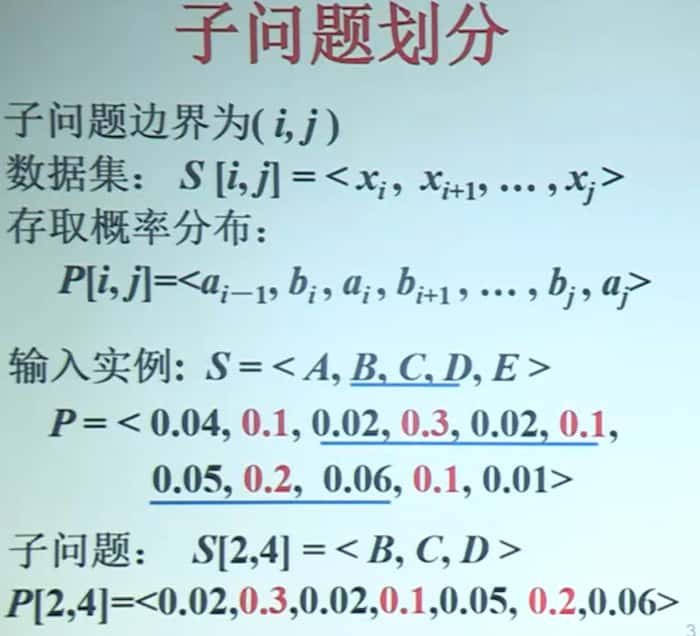 子问题划分
子问题边界为( i, j )
数据集： S [i, j] = < xᵢ, xᵢ₊₁, … , xⱼ>
存取概率分布：
P[i, j]=<aᵢ₋₁, bᵢ, aᵢ, bᵢ₊₁ , … , bⱼ, aⱼ>
输入实例: S = < A, B, C, D, E >
P = < 0.04, 0.1, 0.02, 0.3, 0.02, 0.1,
0.05, 0.2, 0.06, 0.1, 0.01>
子问题： S[2,4] = < B, C, D >
P[2,4]=<0.02,0.3,0.02,0.1,0.05, 0.2,0.06>
3